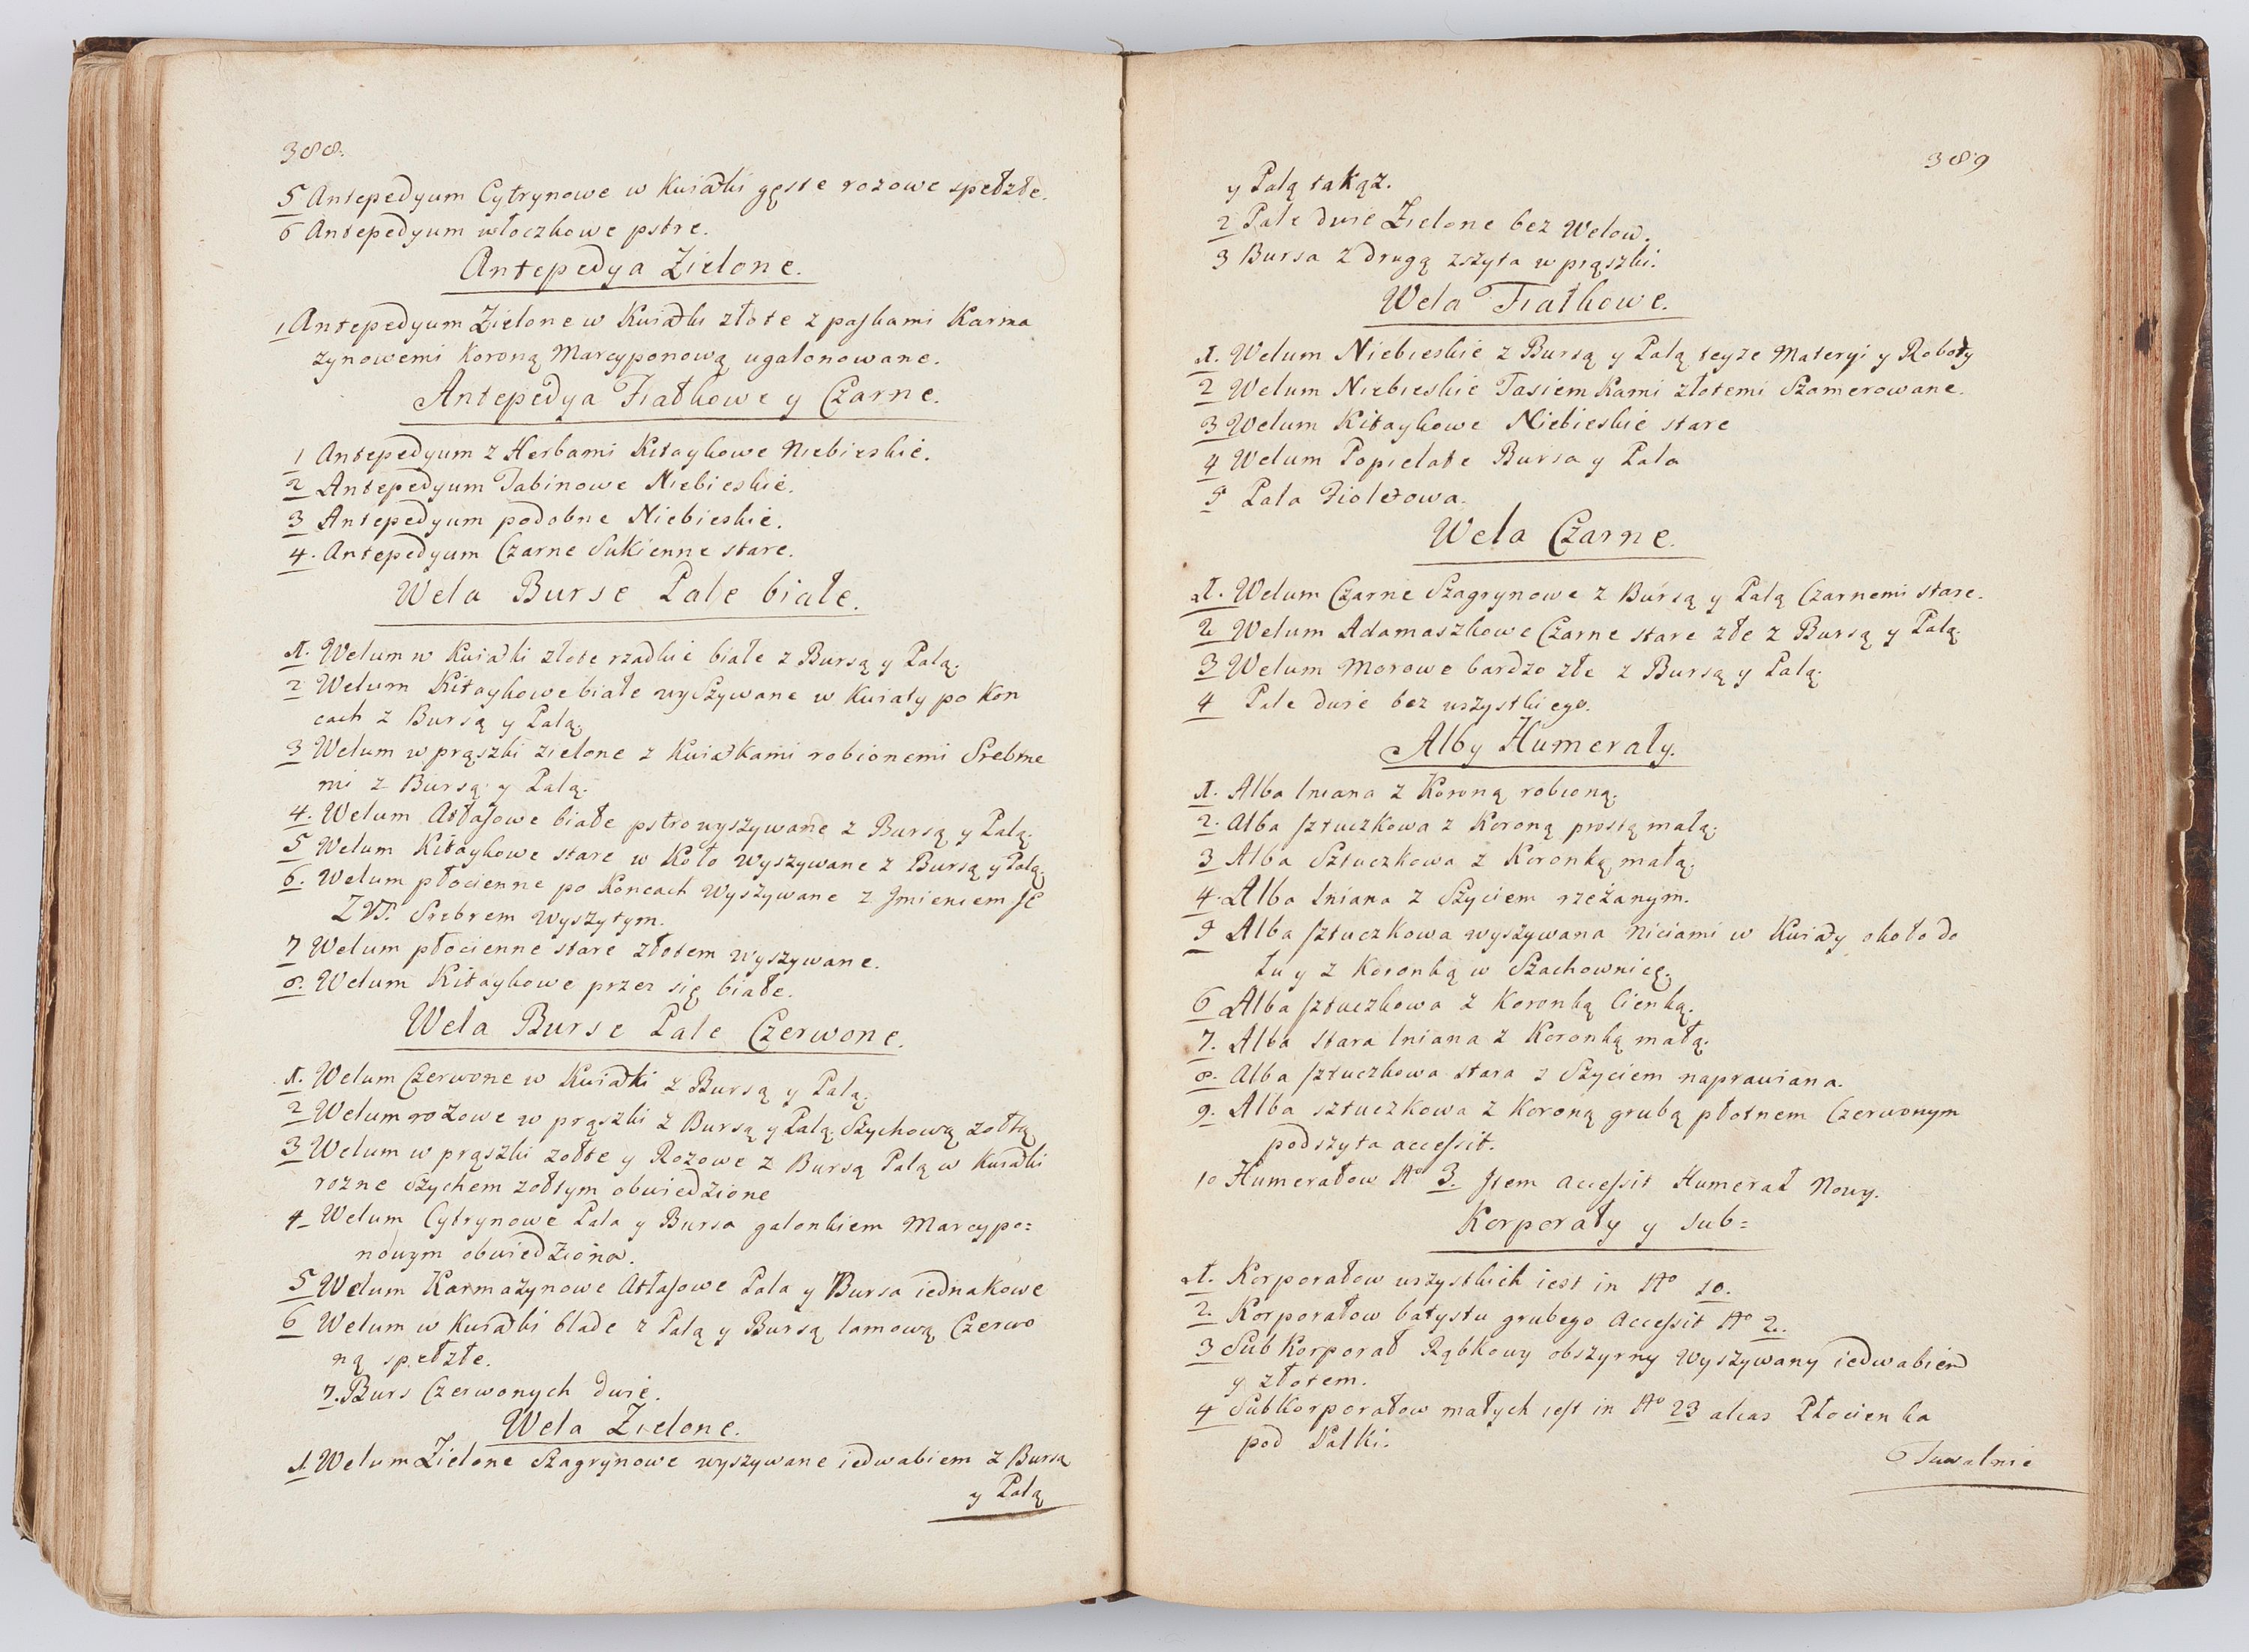 388.
5 Antepedyum Cytrynowe w Kwiatki gęste rozowe spełzłe.
6 Antepedyum włoczkowe pstre.
Antepedya Zielone.
1 Antepedyum Zielone w Kwiatki złote z paskami Karma
zynowemi Koroną Marcyponową ugalonowane.
Antepedya Fiałkowe y Czarne.
1 Antepedyum z Herbami Kitaykowe Niebieskie.
2 Antepedyum Tabinowe Niebieskie.
3 Antepedyum podobne Niebieskie.
4. Antepedyum Czarne Sukienne stare.
Wela Burse Pale białe.
1. Welum w Kwiatki złote rzadkie białe z Bursą y Palą.
2 Welum Kitaykowe białe wyszywane w Kwiaty po Kon
cach z Bursą y Palą.
3 Welum w prąszki zielone z Kwiatkami robionemi Srebrne
mi z Bursą y Palą.
4. Welum Atłasowe białe pstro wyszywane z Bursą y Palą.
5 Welum Kitaykowe stare w Koło wyszywane z Bursą y Palą.
6. Welum płocienne po Koncach wyszywane z Jmieniem
Srebrem wyszytym.
7 Welum płocienne stare złotem wyszywane.
8. Welum Kitaykowe przez się białe.
Wela Burse Pale Czerwone.
1. Welum Czerwone w Kwiatki z Bursą y Palą.
2 Welum rożowe w prąszki z Bursą y Palą Szychową zołtą
3 Welum w prąszki zołte y Rozowe z Bursą Palą w Kwiatki
rozne Szychem zołtym obwiedzione
4 Welum Cytrynowe Pala y Bursa galonkiem Marcypo=
nowym obwiedziona.
5 Welum Karmazynowe Atłasowe Pala y Bursa iednakowe
6 Welum w Kwiatki blade z Palą y Bursą lamową Czerwo
ną spełzłe.
7. Burs Czerwonych dwie.
Wela Zielone.
1. Welum Zielone Szagrynowe wyszywane iedwabiem z Bursą
y Palą
389
y Palą takąż.
2 Pale dwie Zielone bez Welow.
3 Bursa z drugą zszyta w prąszki.
Wela Fiałkowe.
1. Welum Niebieskie z Bursą y Palą teyze Materyi y Roboty
2 Welum Niebieskie Tasiemkami złotemi Szamerowane.
3 Welum Kitaykowe Niebieskie stare
4 Welum Popielate Bursa y Pala
5 Pala Fioletowa.
Wela Czarne.
1. Welum Czarne Szagrynowe z Bursą y Palą Czarnemi stare.
2 Welum Adamaszkowe Czarne stare złe z Bursą y Palą.
3 Welum Morowe bardzo złe z Bursą y Palą.
4 Pale dwie bez wszystkiego.
Alby Humerały.
1. Alba lniana z Koroną robioną.
2. Alba sztuczkowa z Koroną prostą małą.
3 Alba Sztuczkowa z Koronką małą.
4. Alba lniana z Szyciem rzeżanym.
5 Alba sztuczkowa wyszywana niciami w Kwiaty około do
łu y z Koronką w Szachownicę.
6 Alba sztuczkowa z Koronką Cienką.
7. Alba Stara lniana z Koronką małą.
8. Alba sztuczkowa stara z Szyciem naprawiana.
9. Alba sztuczkowa z Koroną grubą płotnem Czerwonym
podszyta accessit.
10 Humerałow No 3. Jtem accessit Humerał Nowy.
Korporały y sub=
1. Korporałow wszystkich iest in No 10.
2. Korporałow batystu grubego Accessit No 2.
3 Sub Korporał Rąbkowy obszyrny wyszywany iedwabiem
y złotem.
4 SubKorporałow małych iest in No 23 alias Płocienka
pod Palki.
Tuwalnie